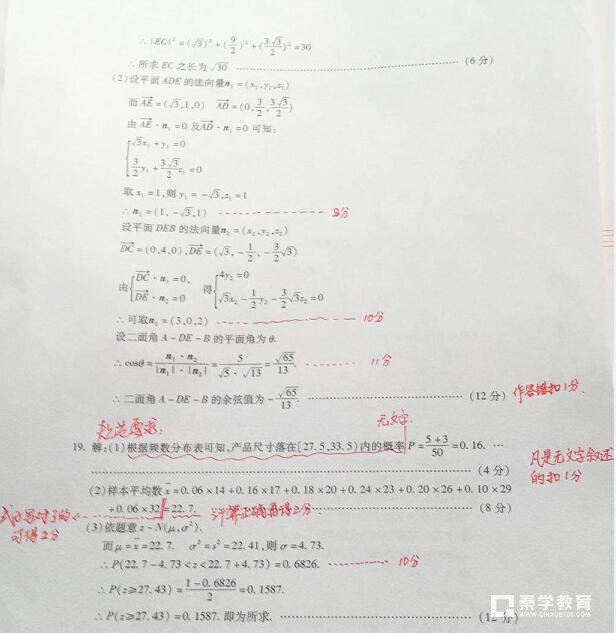 ∴|EC|²=(√3)²+(9/2)²+(3√3/2)²=30
∴所求EC之长为√30 ……(6分)
(2)设平面ADE的法向量n₁=(x₁,y₁,z₁)
而AE=(√3,1,0) AD=(0,3/2,3√3/2)
由AE·n₁=0及AD·n₁=0可知:
√3x₁+y₁=0
3/2y₁+3√3/2z₁=0
取x₁=1,则y₁=-√3,z₁=1
∴n₁=(1,-√3,1) 8分
设平面DEB的法向量n₂=(x₂,y₂,z₂)
DC=(0,4,0),DE=(√3,-1/2,-3/2√3)
由{DC·n₂=0, DE·n₂=0 得{4y₂=0 √3x₂-1/2y₂-3/2√3z₂=0
∴可取n₂=(3,0,2) 10分
设二面角A-DE-B的平面角为θ.
∴cosθ=n₁·n₂/|n₁|·|n₂|=5/√5·√13=√65/13. 11分
∴二面角A-DE-B的余弦值为-√65/13. ……(12分) 作答错扣1分.
无文字.
19. 解:(1)根据频数分布表可知,产品尺寸落在[27.5,33.5)内的概率P=5+3/50=0.16. …
……(4分)
凡是无文字叙述的扣1分
(2)样本平均数x=0.06×14+0.16×17+0.18×20+0.24×23+0.20×26+0.10×29
+0.06×32=22.7. ……(8分)
式子写对了的可得2分
计算正确再得2分
(3)依题意z~N(μ,σ²).
而μ=x=22.7. σ²=s²=22.41,则σ=4.73.
∴P(22.7-4.73<z<22.7+4.73)=0.6826. 10分
∴P(z≥27.43)=1-0.6826/2=0.1587.
∴P(z≥27.43)=0.1587.即为所求. ……(12分)
秦学教育
WWW.QINXUE100.COM